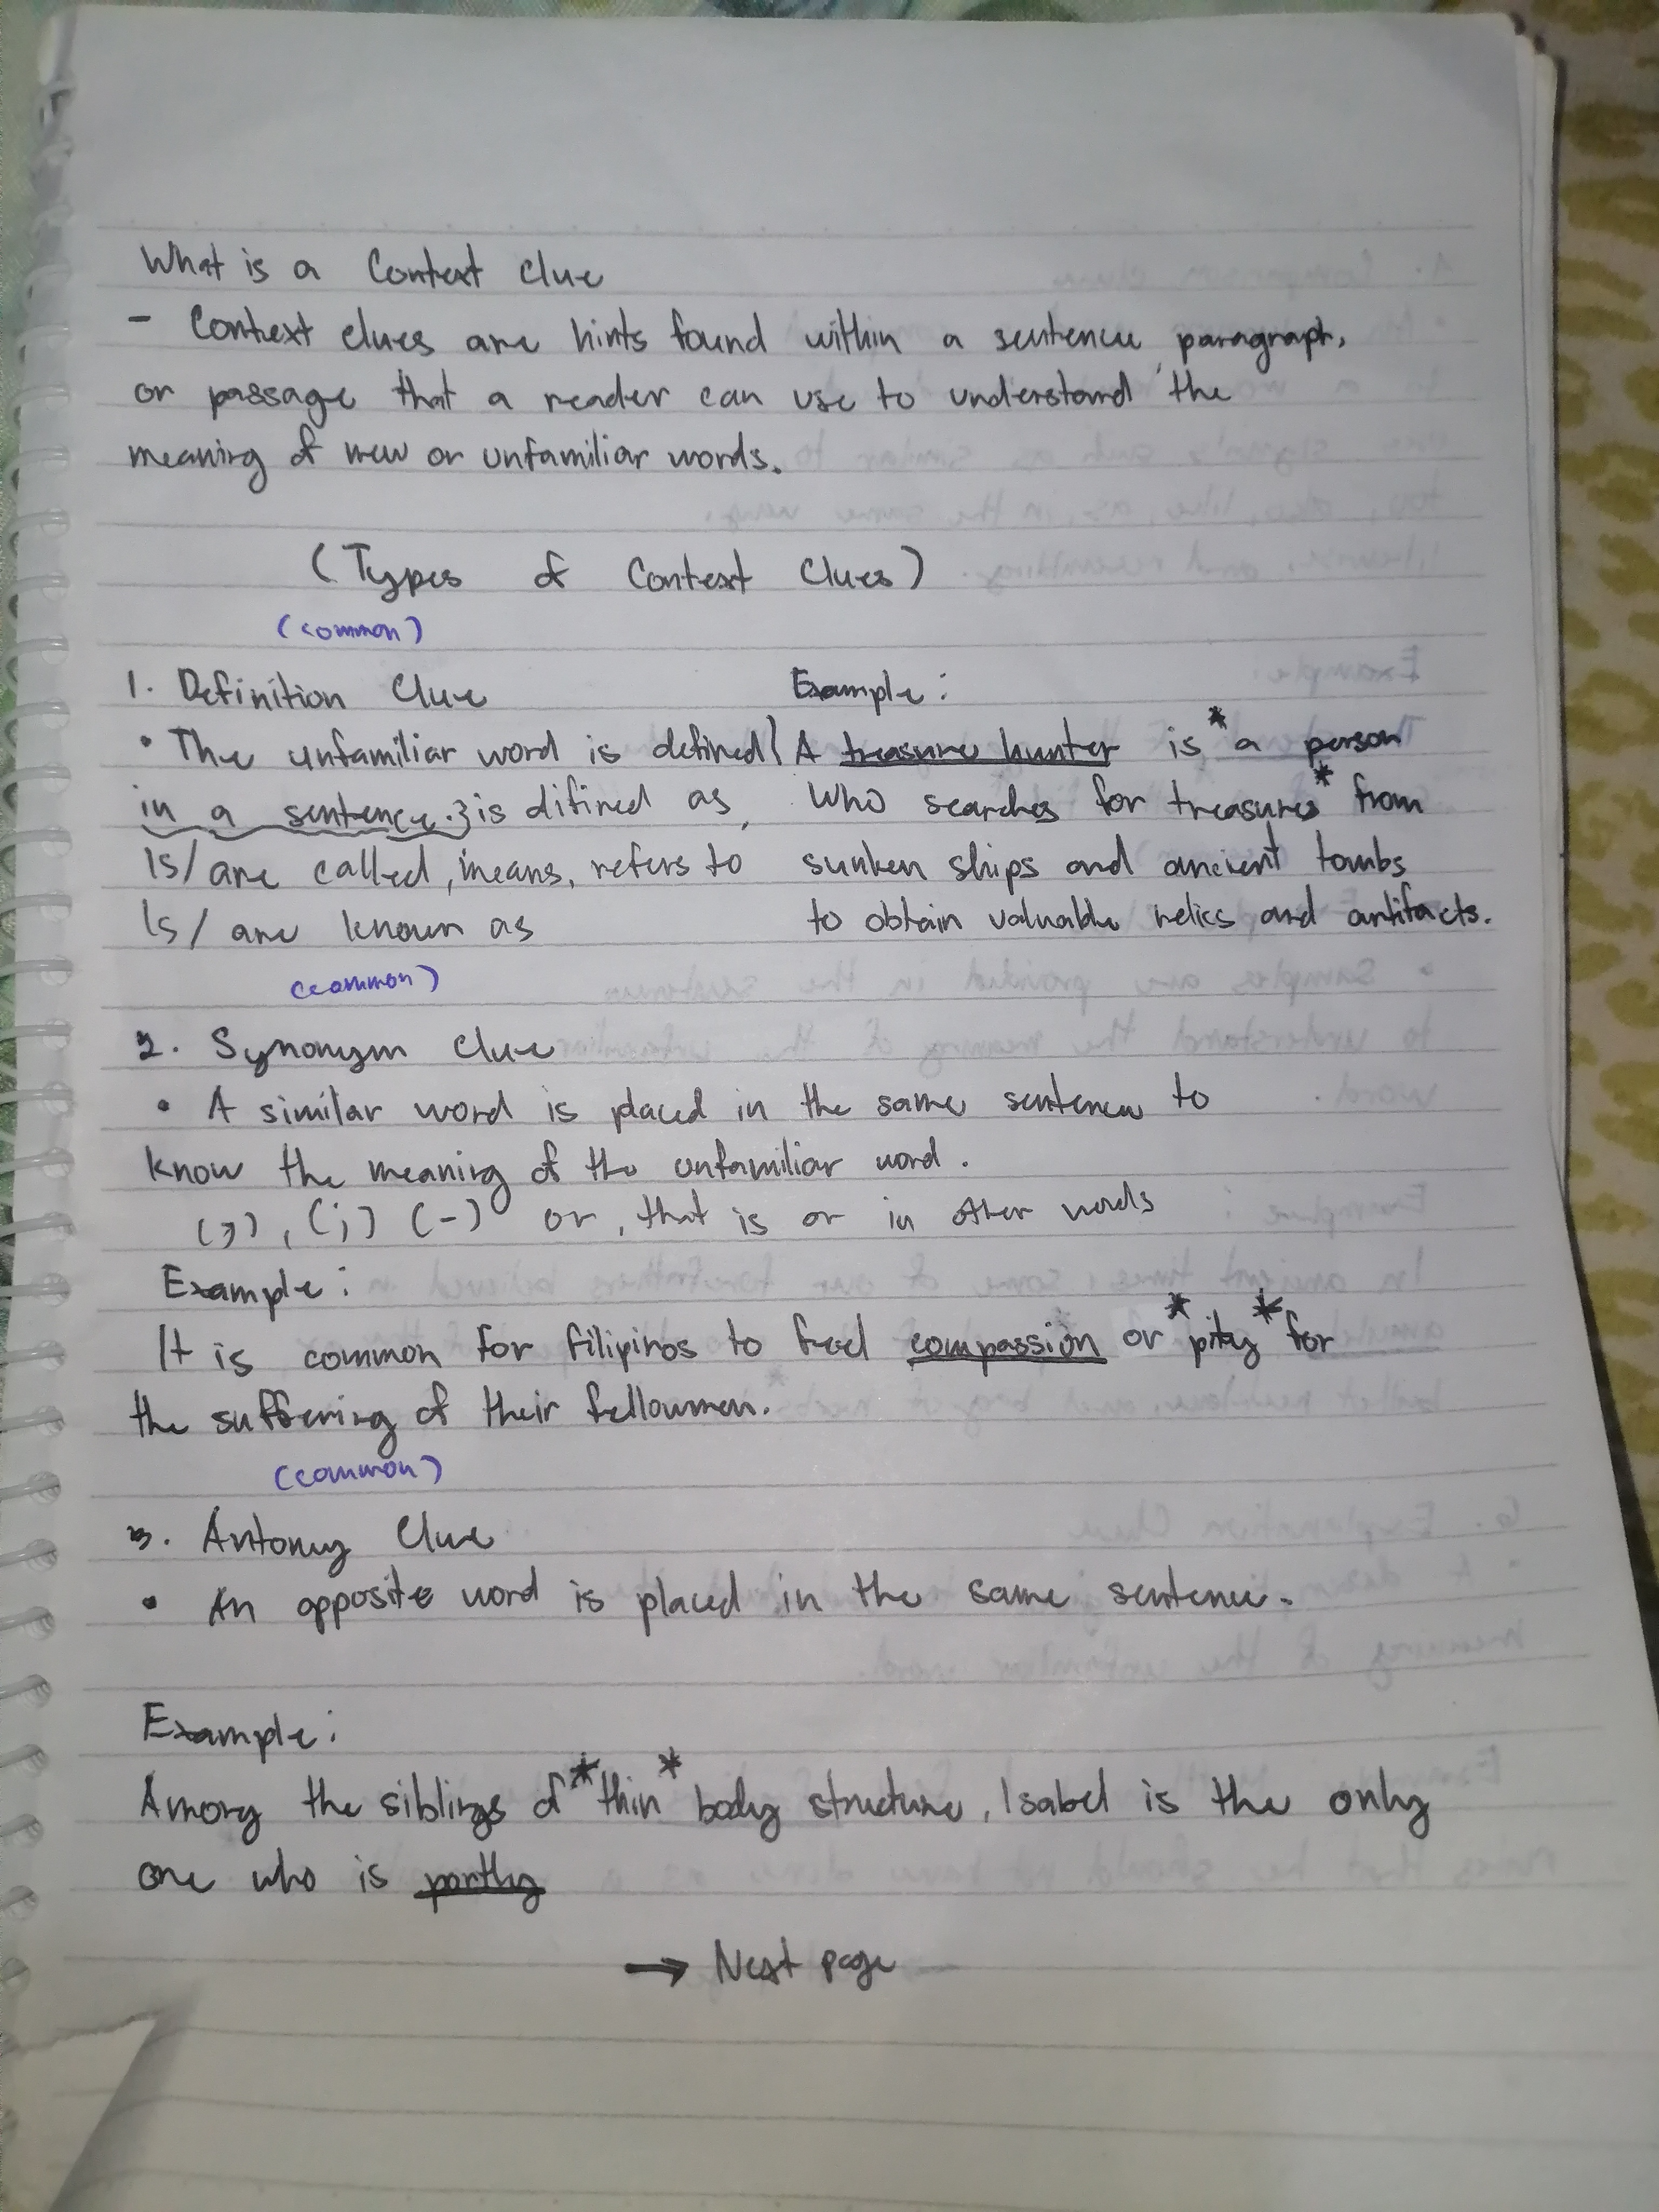 What is a Context Clue
- Context clues are hints found within a sentence, paragraph,
or passage that a reader can use to understand the
meaning of new or unfamiliar words.
(Types of Context Clues)
(common)
1. Definition Clue
• The unfamiliar word is defined
in a sentence. } is difined as,
Is/are called, means, refers to
Is/are known as
Example:
A treasure hunter is * a person
who searches for treasures * from
sunken ships and ancient tombs
to obtain valuable relics and artifacts.
(common)
2. Synonym Clue
• A similar word is placed in the same sentence to
know the meaning of the unfamiliar word.
(,), (;) (-) or, that is or in other words
Example:
It is common for filipinos to feel compassion or *pity* for
the suffering of their fellowmen.
(common)
3. Antonmy Clue
• An opposite word is placed in the same sentence.
Example:
Among the siblings of *thin* body structure, Isabel is the only
one who is portly
→ Next page